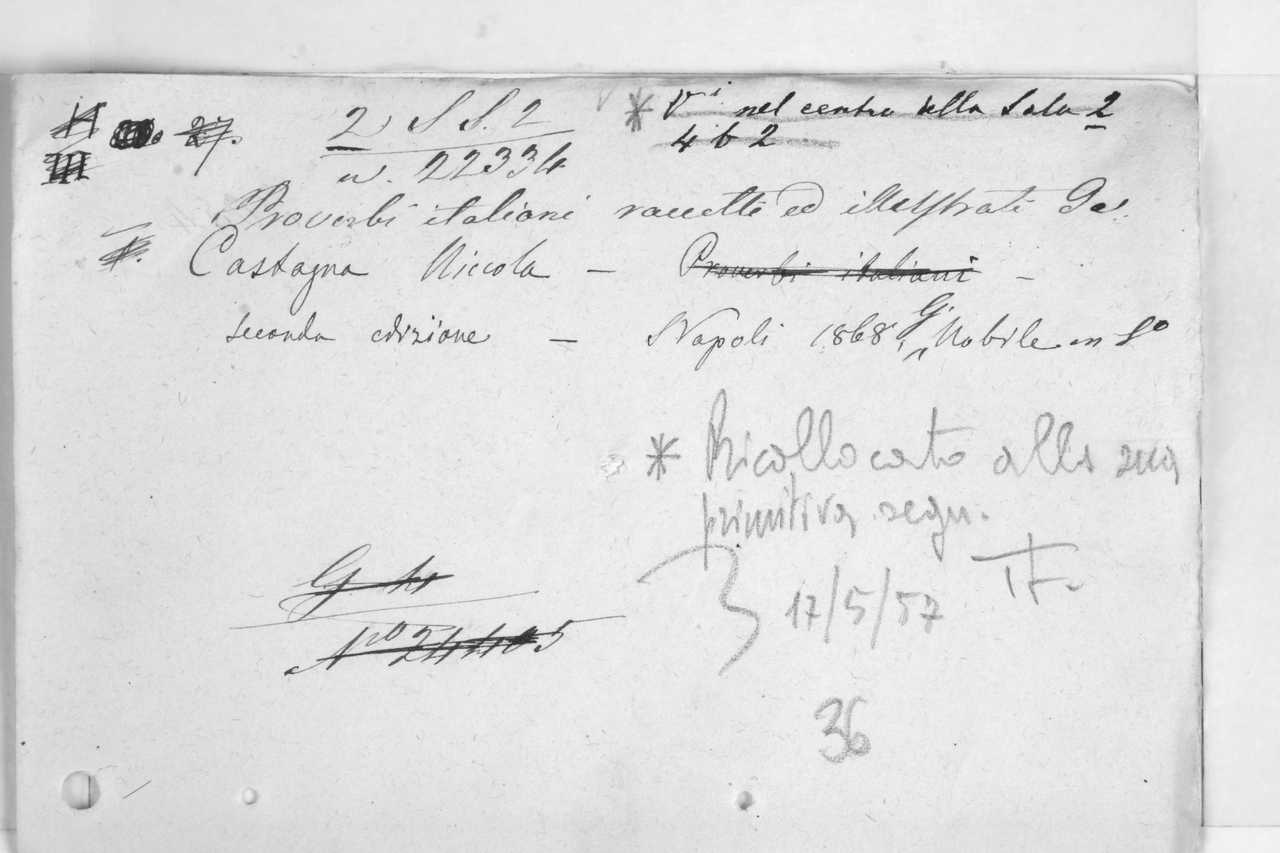 27.
2 S S. 2
n. 22334
* V.i nel centro della Sala 2
4 b 2
Proverbi italiani raccolti ed illustrati da
Castagna Niccola – Proverbi italiani –
seconda edizione – Napoli 1868, G. Nobile in 8º
* Ricollocato alla sua
primitiva segn.
17/5/57
N.ro 24405
36